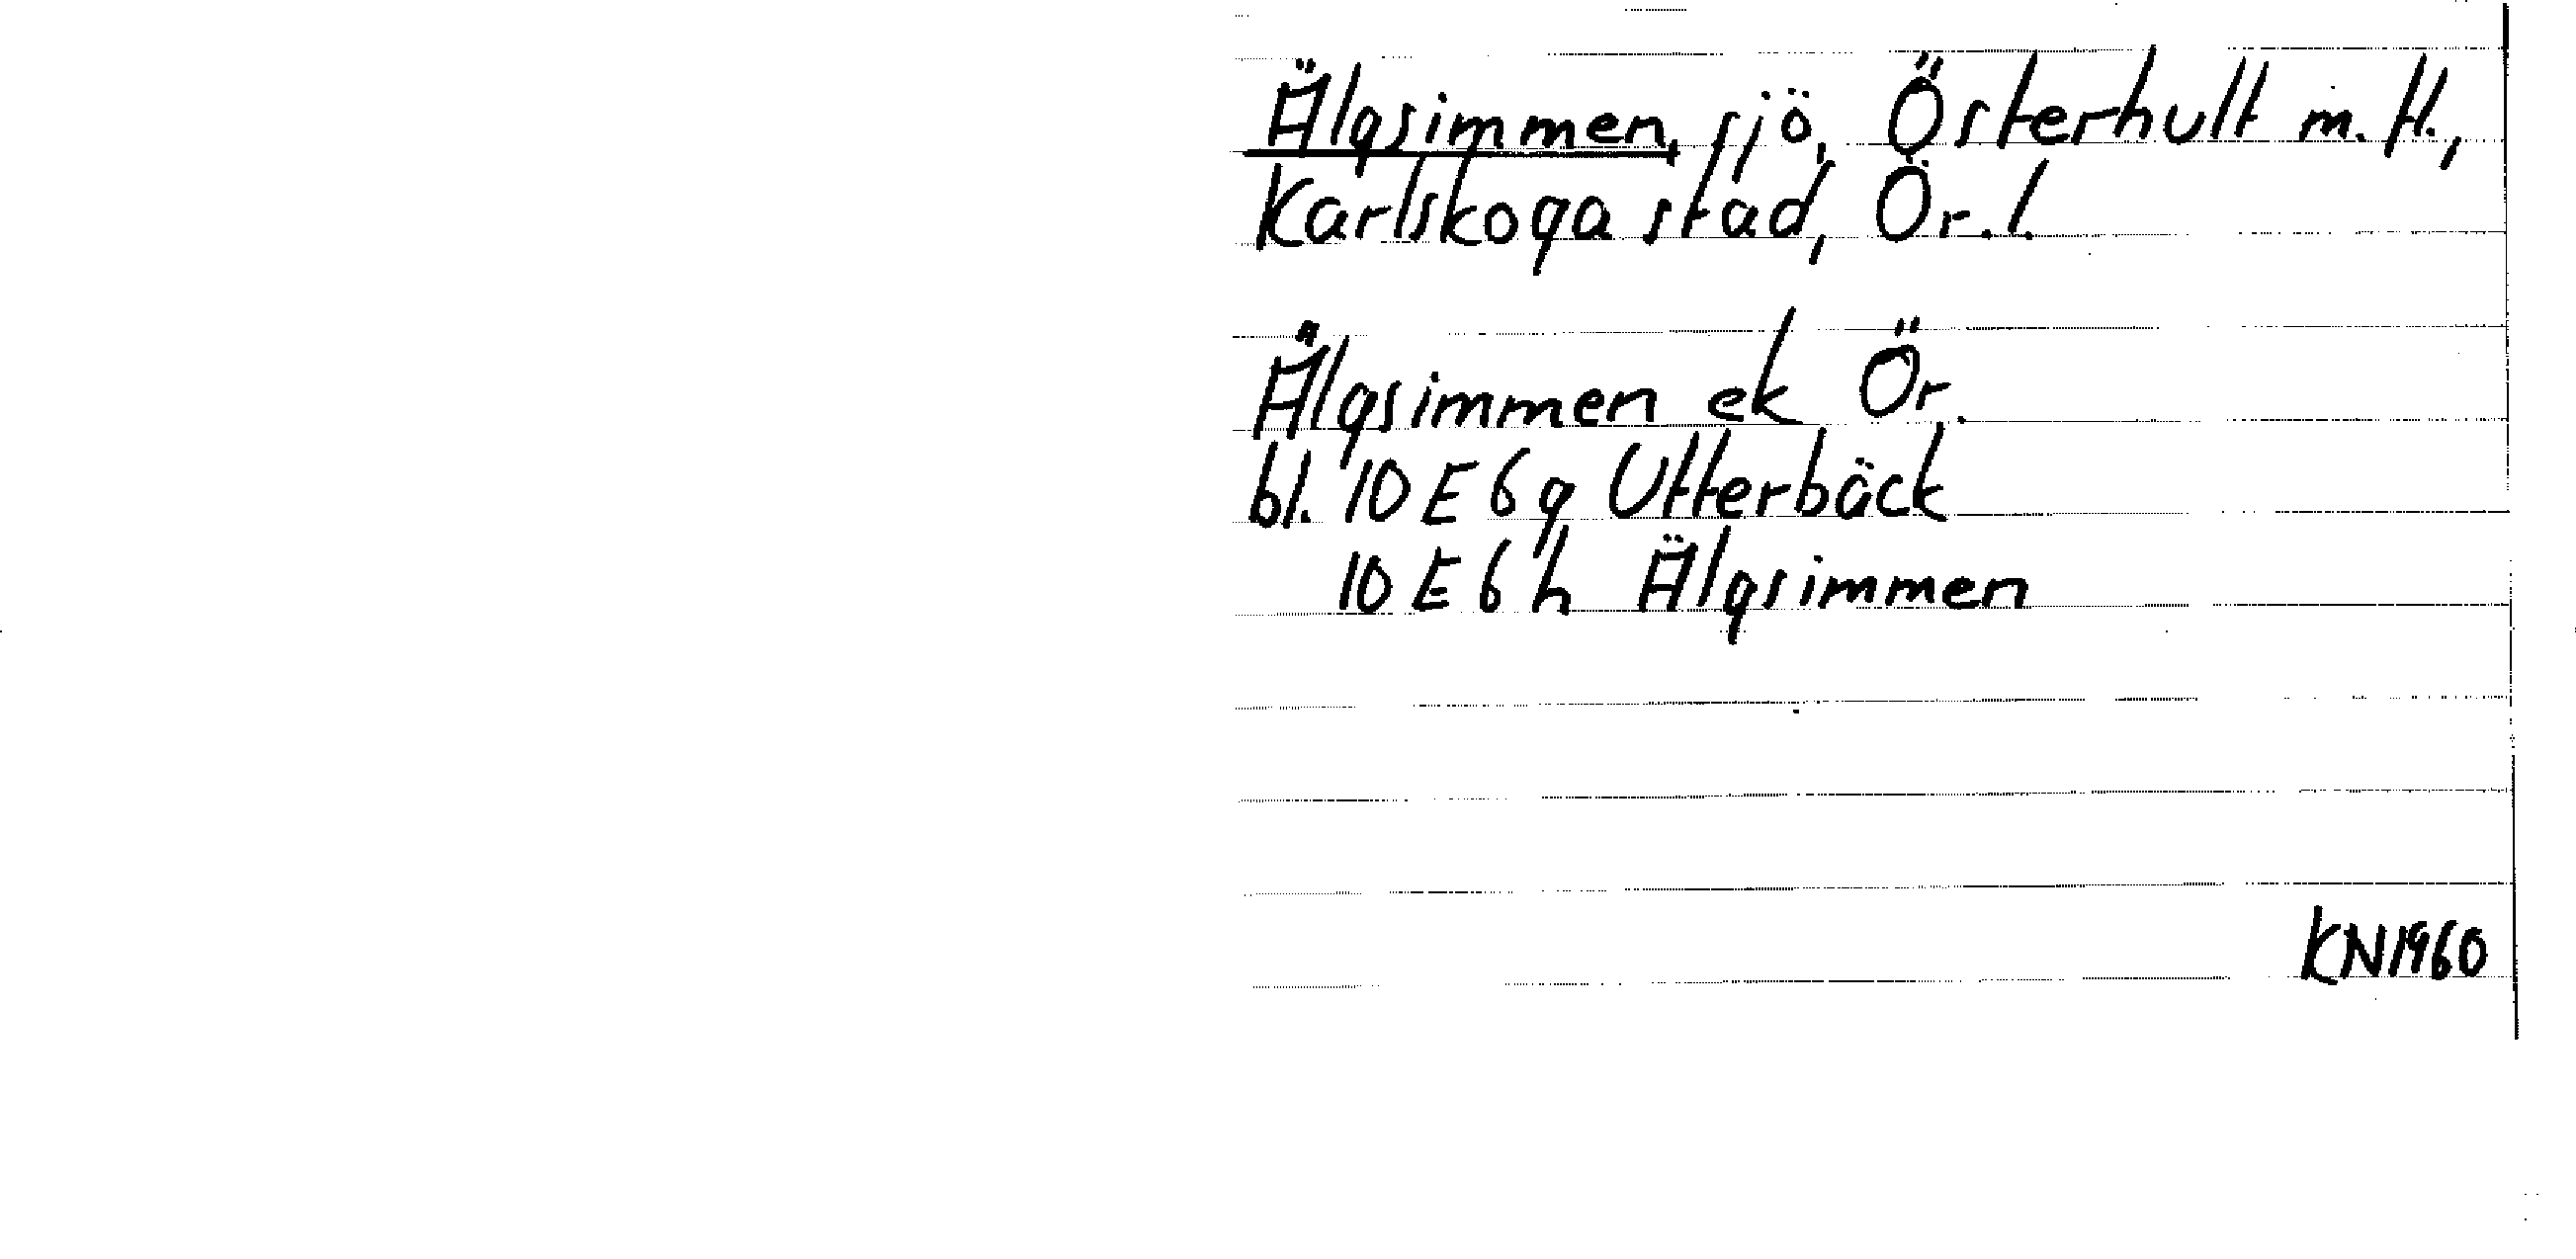 Älgsimmen, sjö, Österhult m. fl.,
Karlskoga stad, Ör. l.
Älgsimmen ek Ör.
bl. 10 E 6 g Utterbäck
10 E 6 h Älgsimmen
KN1960